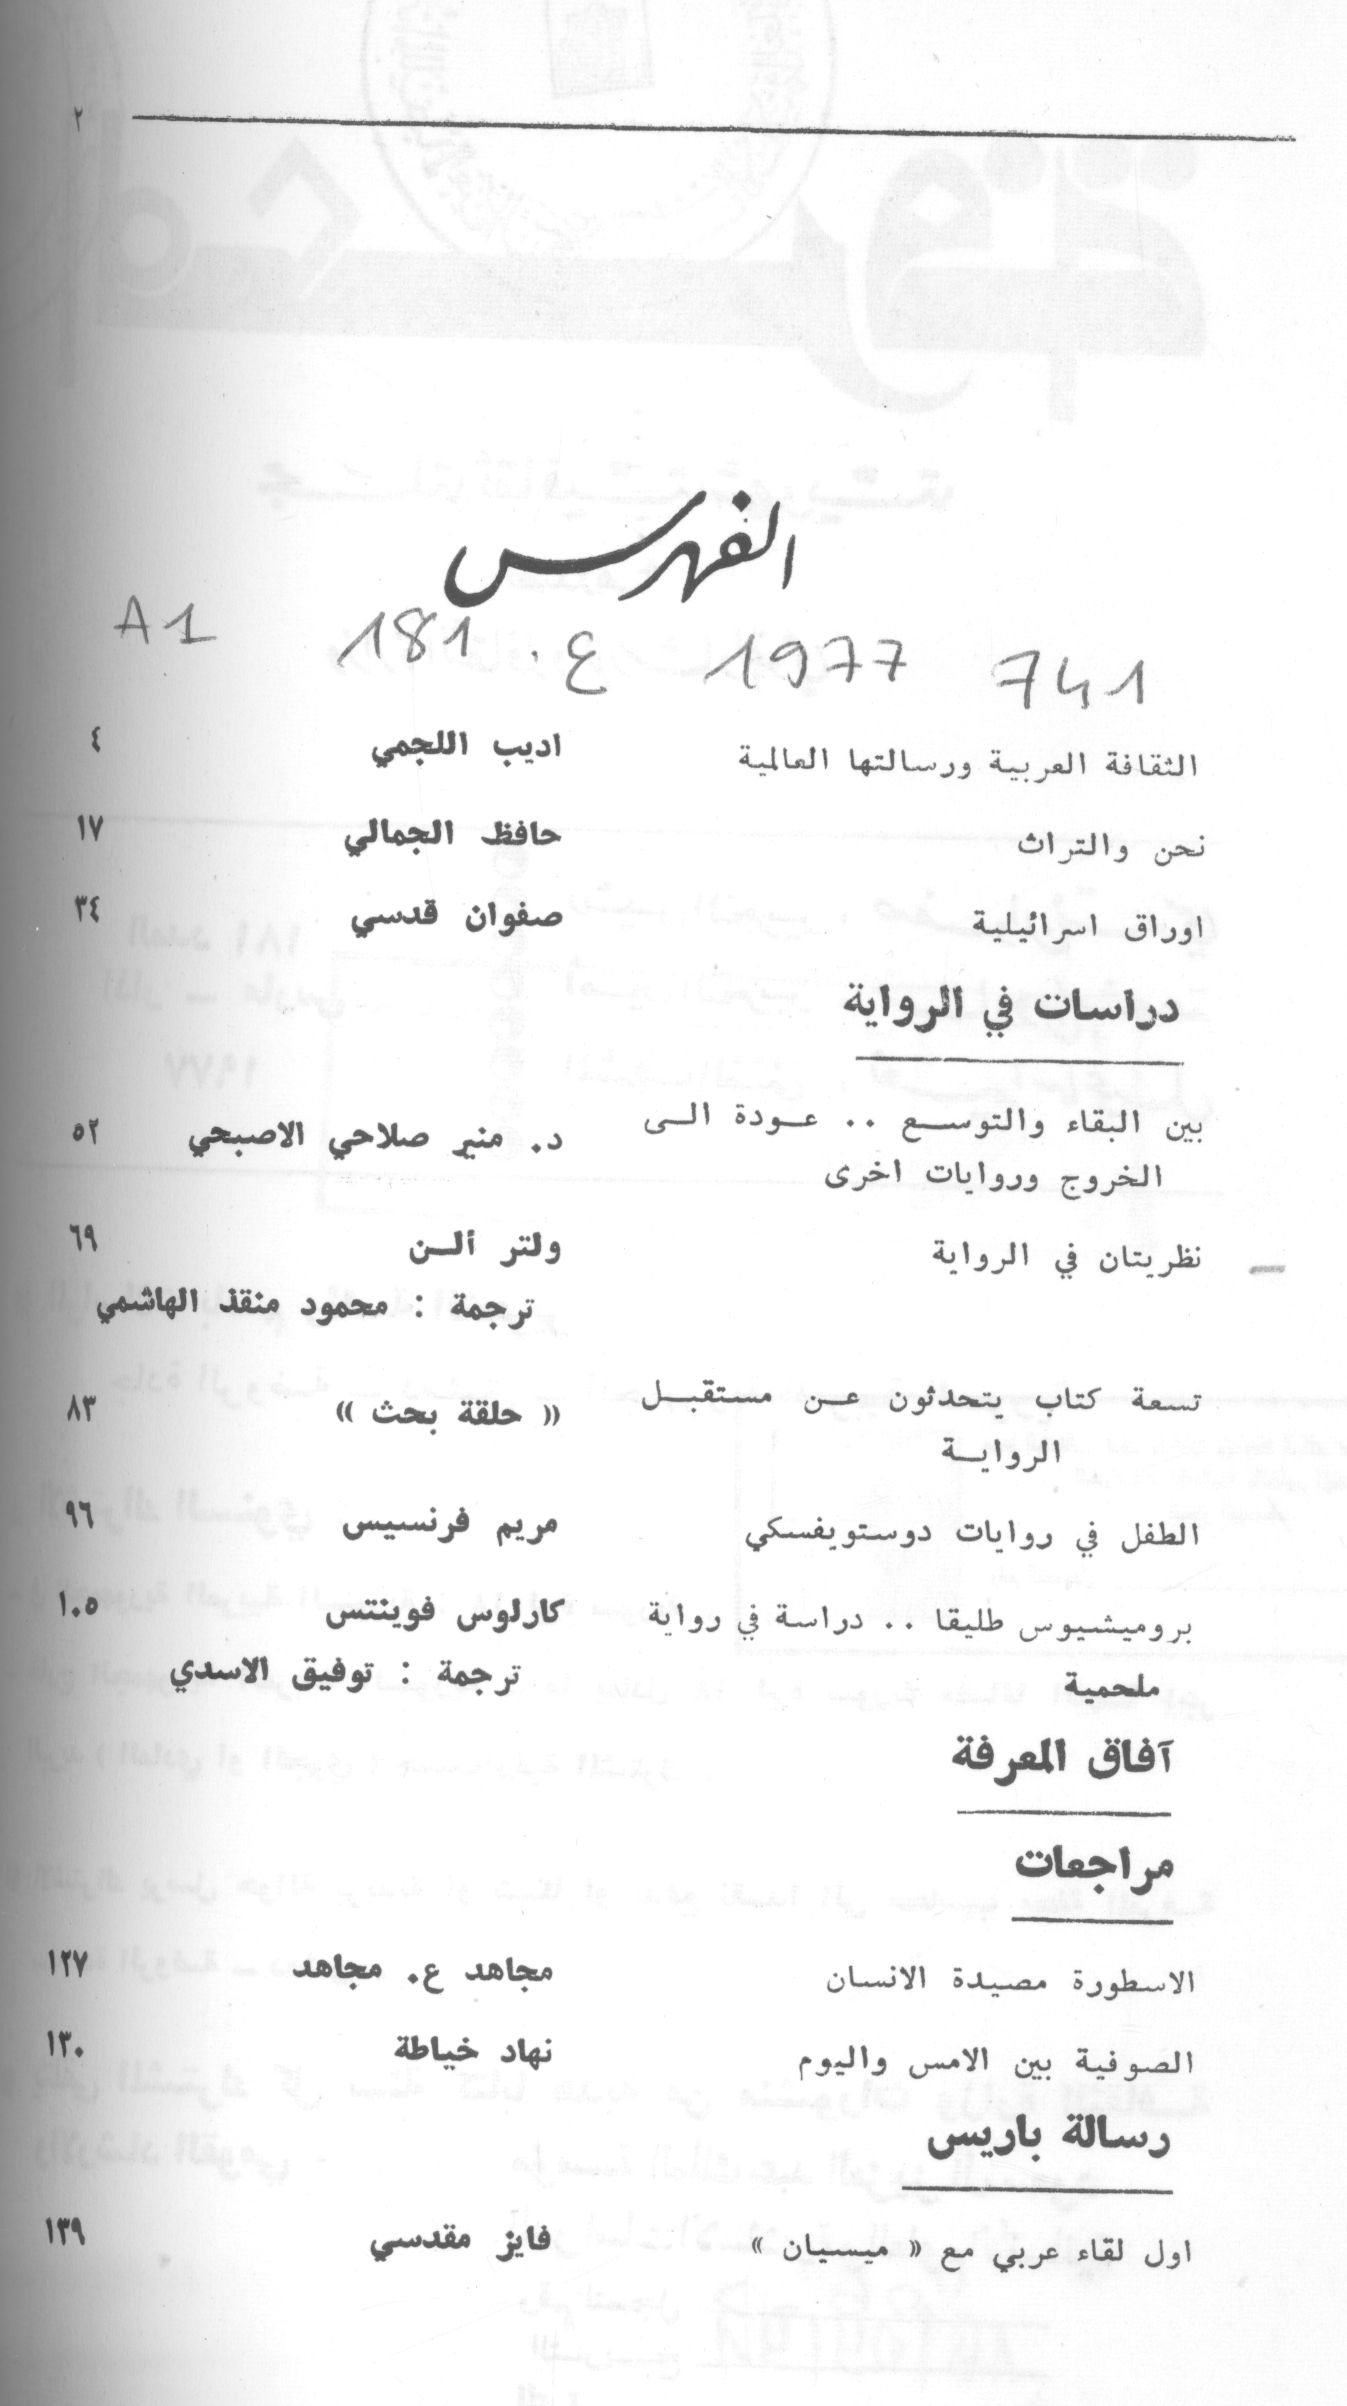 ٢
الفهرس
741 1977 ع. 181 A1
الثقافة العربية ورسالتها العالمية اديب اللجمي ٤
نحن والتراث حافظ الجمالي ١٧
اوراق اسرائيلية صفوان قدسي ٣٤
دراسات في الرواية
بين البقاء والتوسـع .. عـودة الـى د. منير صلاحي الاصبحي ٥٢
الخروج وروايات اخرى
نظريتان في الرواية ولتر ألـن ٦٩
ترجمة : محمود منقذ الهاشمي
تسعة كتاب يتحدثون عـن مستقبـل « حلقة بحث » ٨٣
الروايـة
الطفل في روايات دوستويفسكي مريم فرنسيس ٩٦
بروميشيوس طليقا .. دراسة في رواية كارلوس فوينتس ١٠٥
ملحمية ترجمة : توفيق الاسدي
آفاق المعرفة
مراجعات
الاسطورة مصيدة الانسان مجاهد ع. مجاهد ١٢٧
الصوفية بين الامس واليوم نهاد خياطة ١٣٠
رسالة باريس
اول لقاء عربي مع « ميسيان » فايز مقدسي ١٣٩